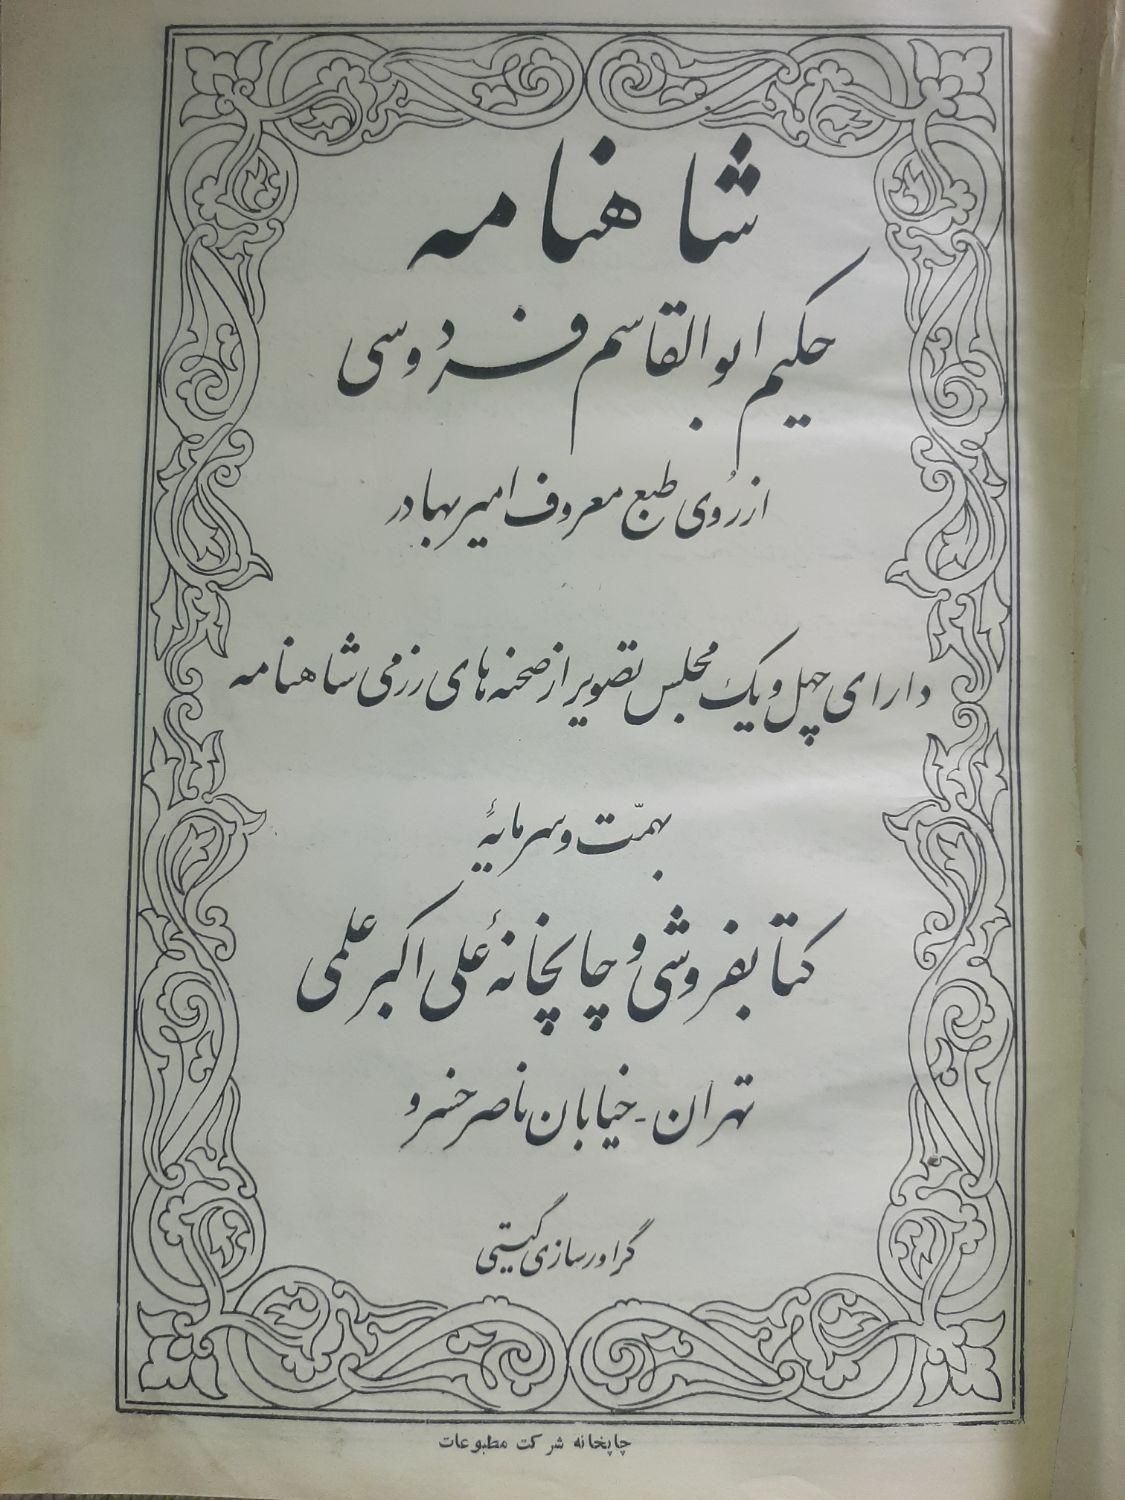 شاهنامه
حکیم ابوالقاسم فردوسی
از رُوی طبع معروف امیر بهادر
دارای چهل و یک مجلس تصویر از صحنه های رزمی شاهنامه
بهمّت و سرمایهٔ
کتابفروشی و چاپخانهٔ علی اکبر علمی
تهران - خیابان ناصر خسرو
گراور سازی گیتی
چاپخانه شرکت مطبوعات